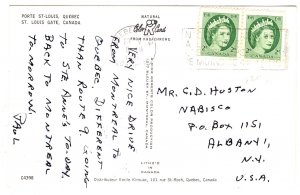 PORTE ST-LOUIS, QUEBEC
ST. LOUIS GATE, CANADA
NATURAL
Color Card
FROM KODACHROME
VERY NICE DRIVE
FROM MONTREAL TO
QUEBEC DIFFERENT
THAN ROUTE 9. GOING
TO STE ANNE'S TO-DAY.
BACK TO MONTREAL
TO-MORROW.
PAUL
MR. C.D. HUSTON
NABISCO
P.O. BOX 1151
ALBANY 1,
N.Y.
U.S.A.
LITHO'D
IN
CANADA
C4398
Distributeur Emile Kirouac, 101 rue St-Roch, Quebec, Canada